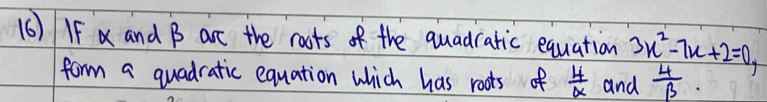 16) IF α and β are the roots of the quadratic equation 3x²-7x+2=0,
form a quadratic equation which has roots of 4/α and 4/β.